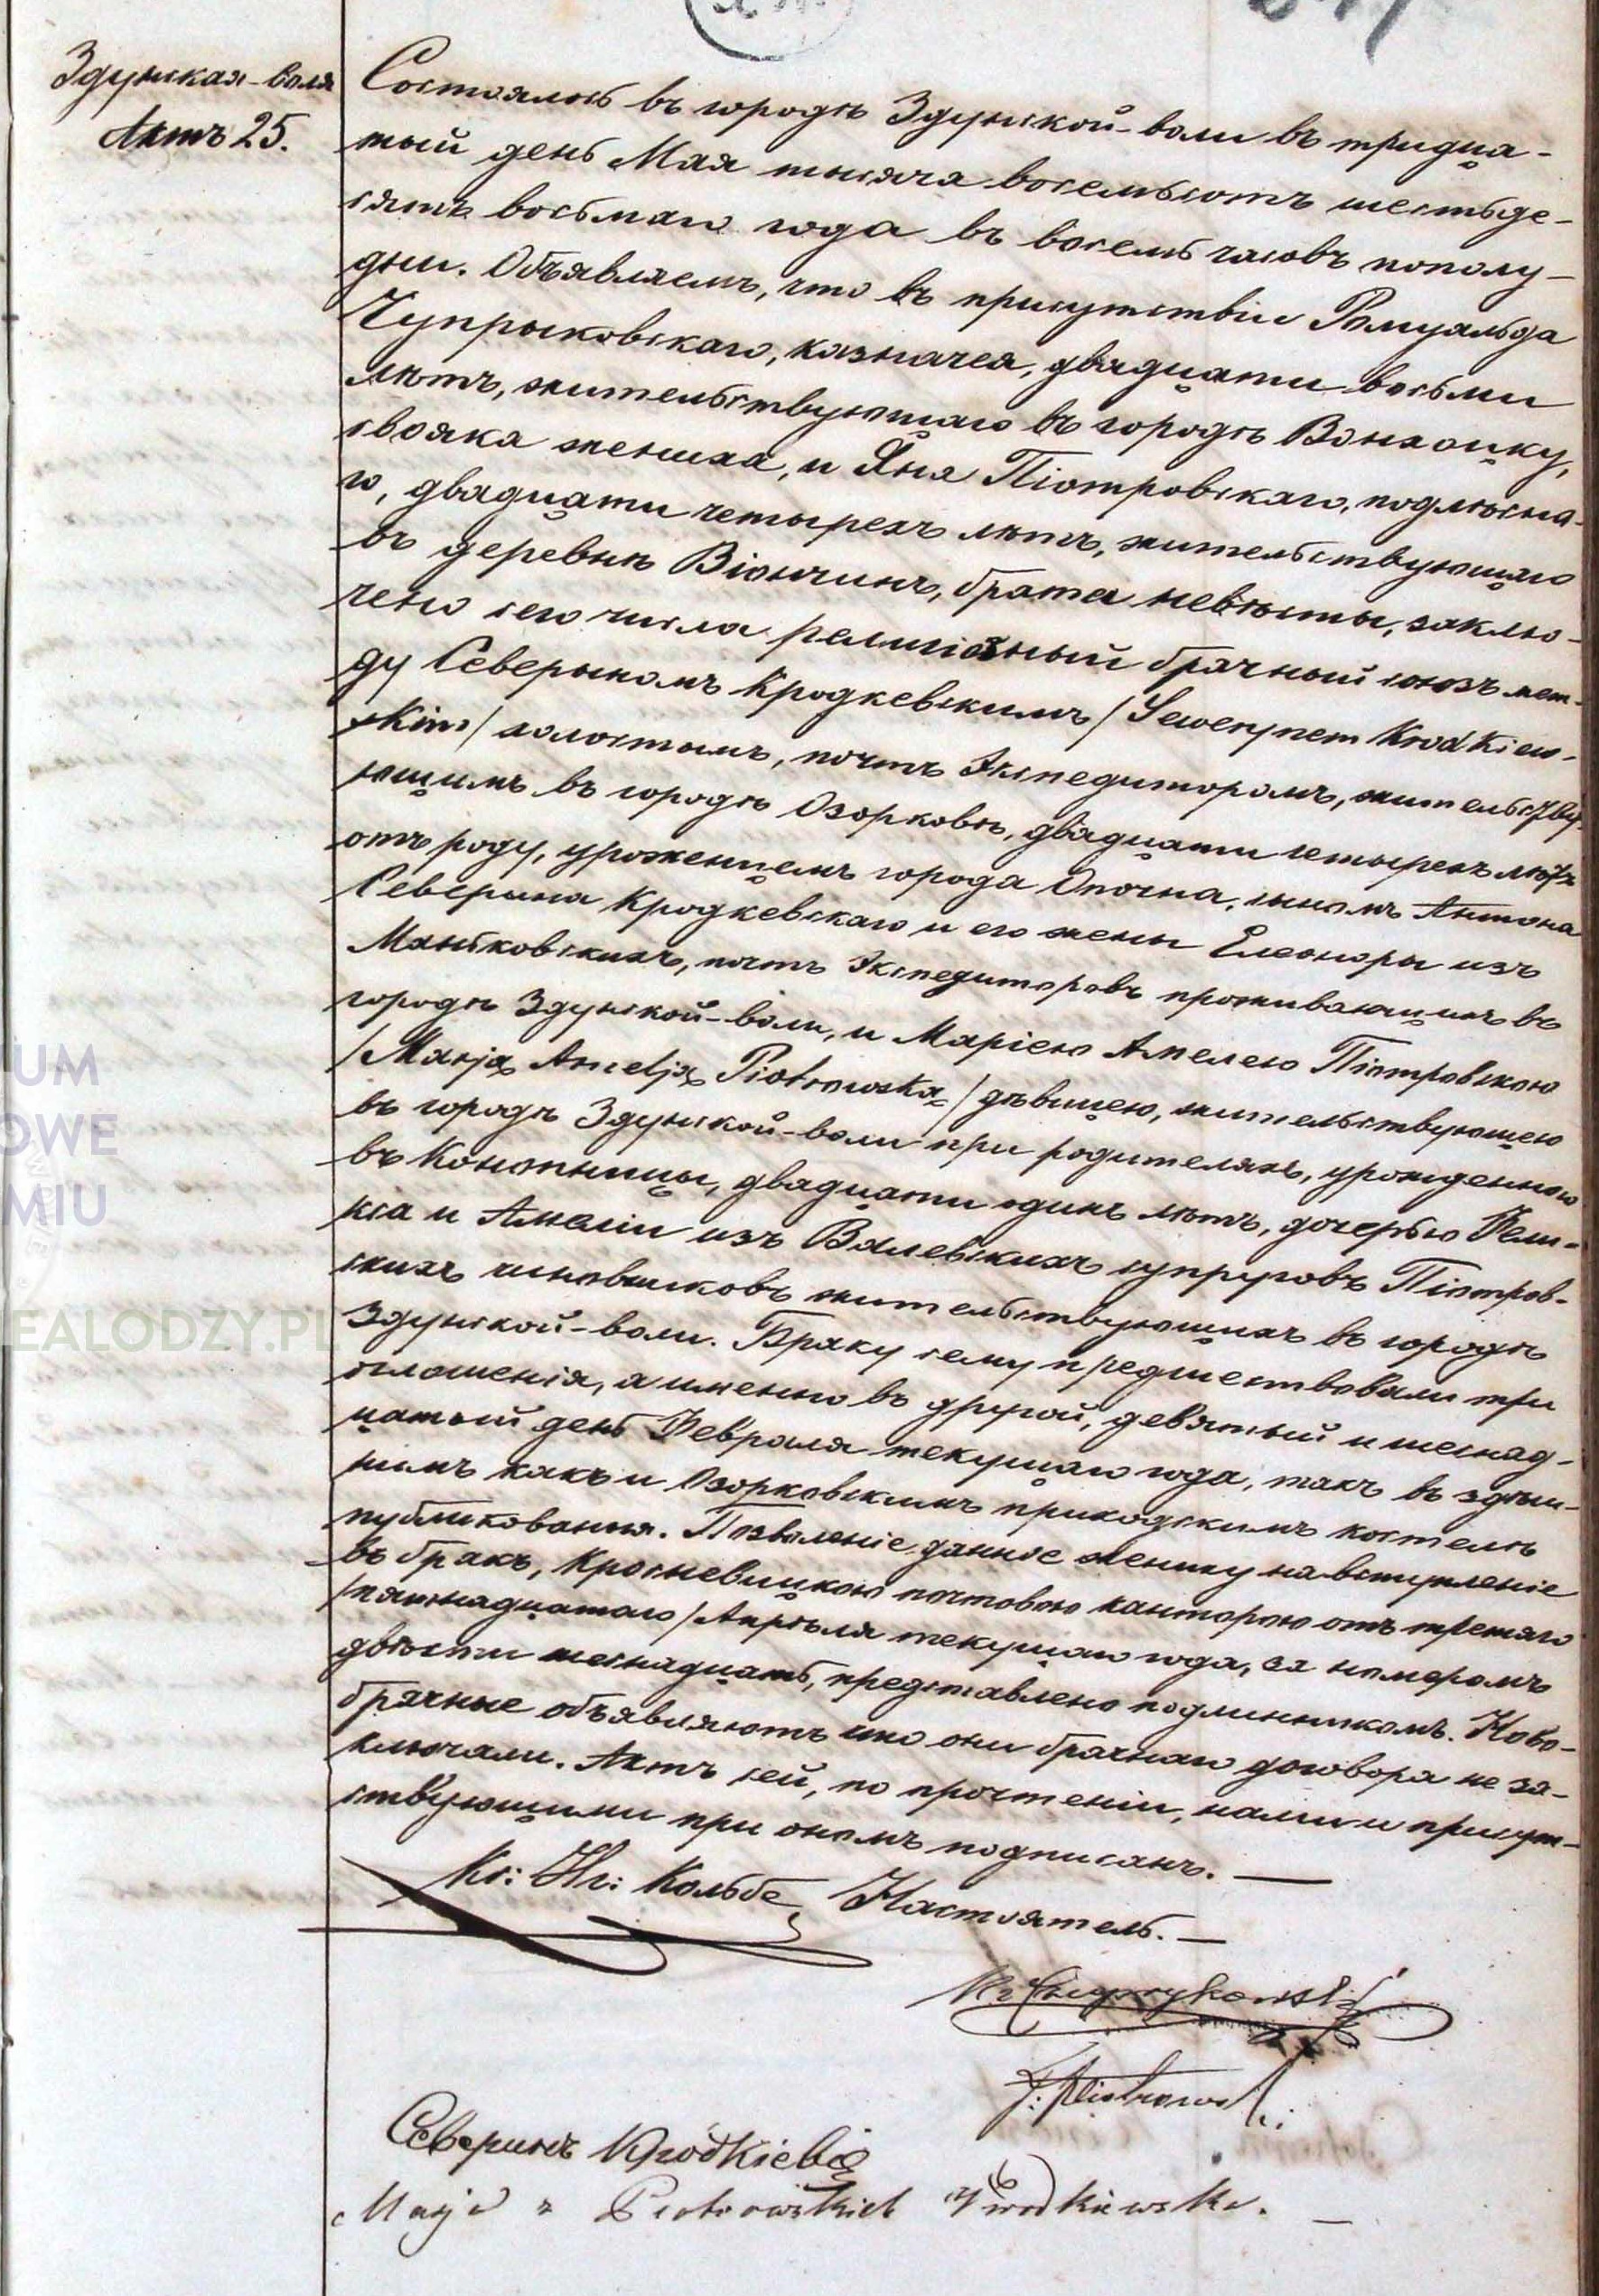 Здунская-воля
Актъ 25.
Состоялось въ городѣ Здунской-воли въ тридца-
тый день Мая тысяча восемьсотъ шестьде-
сятъ восьмаго года въ восемь часовъ пополу-
дни. Объявляемъ, что въ присутствіи Ромуальда
Чупрыковскаго, казначея, двадцати восьми
лѣтъ, жительствующаго въ городѣ Вонхоцку,
свояка жениха, и Яна Піотровскаго, подлѣсна-
го, двадцати четырехъ лѣтъ, жительствующаго
въ деревнѣ Віончинъ, брата невѣсты, заклю-
чено сего числа религіозный брачный союзъ меж-
ду Северыномъ Кродкевскимъ / Sewerynem Krodkiew-
skim / холостымъ, почтъ Экспедиторомъ, жительству-
ющимъ въ городѣ Озорковѣ, двадцати четырехъ лѣтъ
отъ роду, уроженцемъ города Опочна, сыномъ Антона
Северина Кродкевскаго и его жены Елеоноры изъ
Маньковскихъ, почтъ Экспедиторовъ проживающихъ въ
городѣ Здунской-воли, и Маріею Амелею Піотровскою
/ Marją Amelją Piotrowską / дѣвицею, жительствующею
въ городѣ Здунской-воли при родителяхъ, урожденною
въ Конопницы, двадцати одинъ лѣтъ, дочерью Фели-
кса и Амеліи изъ Валевскихъ супруговъ Піотров-
скихъ чиновниковъ жительствующихъ въ городѣ
Здунской-воли. Браку сему предшествовали три
оглашенія, а именно въ другой, девятый и шеснад-
цатый день Февраля текущаго года, такъ въ здѣш-
нимъ какъ и Озорковскимъ приходскимъ костелѣ
публикованныя. Позволеніе данное жениху на вступленіе
въ бракъ, Кросневицкою почтовою канторою отъ третяго
/ пятнадцатаго / Апрѣля текущаго года, за номеромъ
двѣсти шеснадцать, представлено подлинникомъ. Ново-
брачные объявляютъ что они брачнаго договора не за-
ключали. Актъ сей, по прочтеніи, нами и присут-
ствующими при ономъ подписанъ. —
Кс: Иг: Кольбе Настоятель. —
J: Piotrowski
Северинъ
Marja z Piotrowskich Krodkiewska. —
UM
OWE
MIU
EALODZY.PL